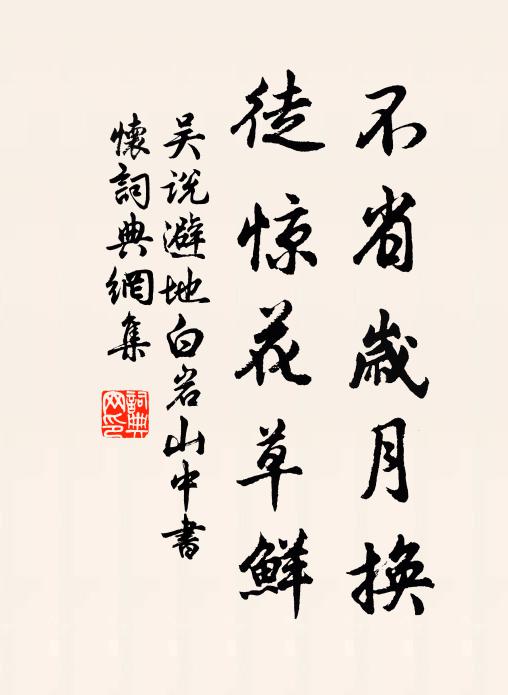 不省歲月換
徒惊花草鮮
吴说避地白岩山中書
懷詞典網集
詞典
网印